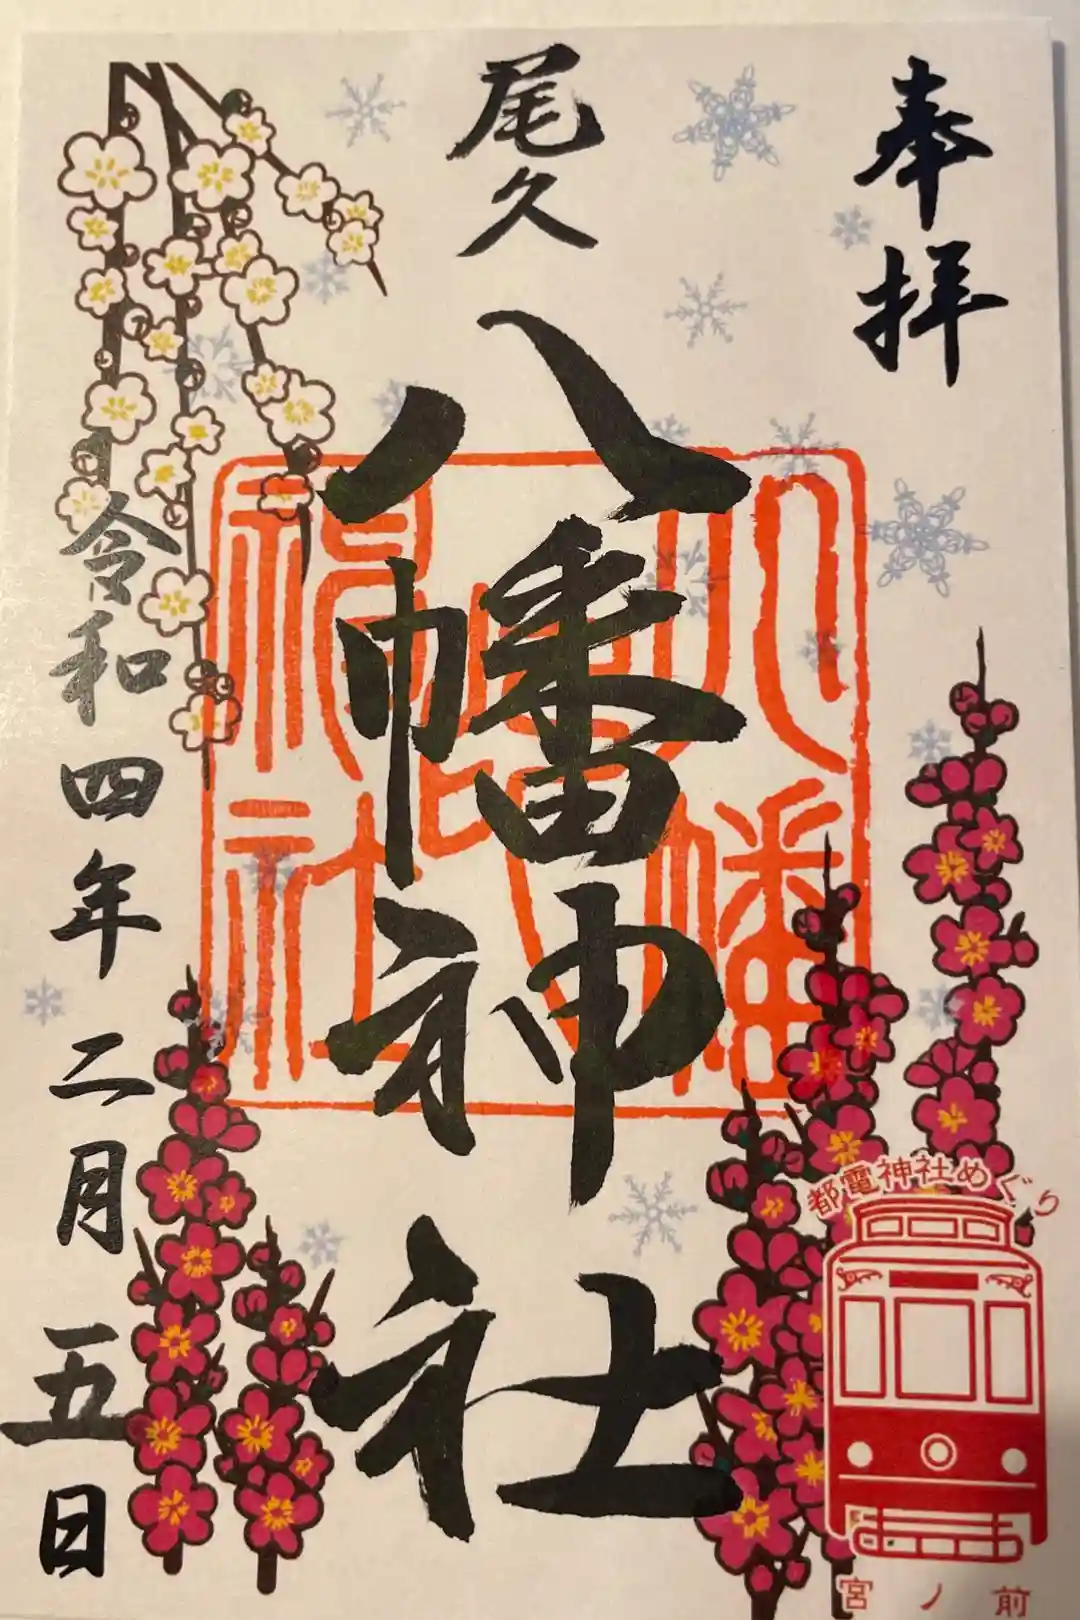 奉拝
尾久
八幡神社
八幡
神社
令和四年二月五日
都電神社めぐり
宮ノ前